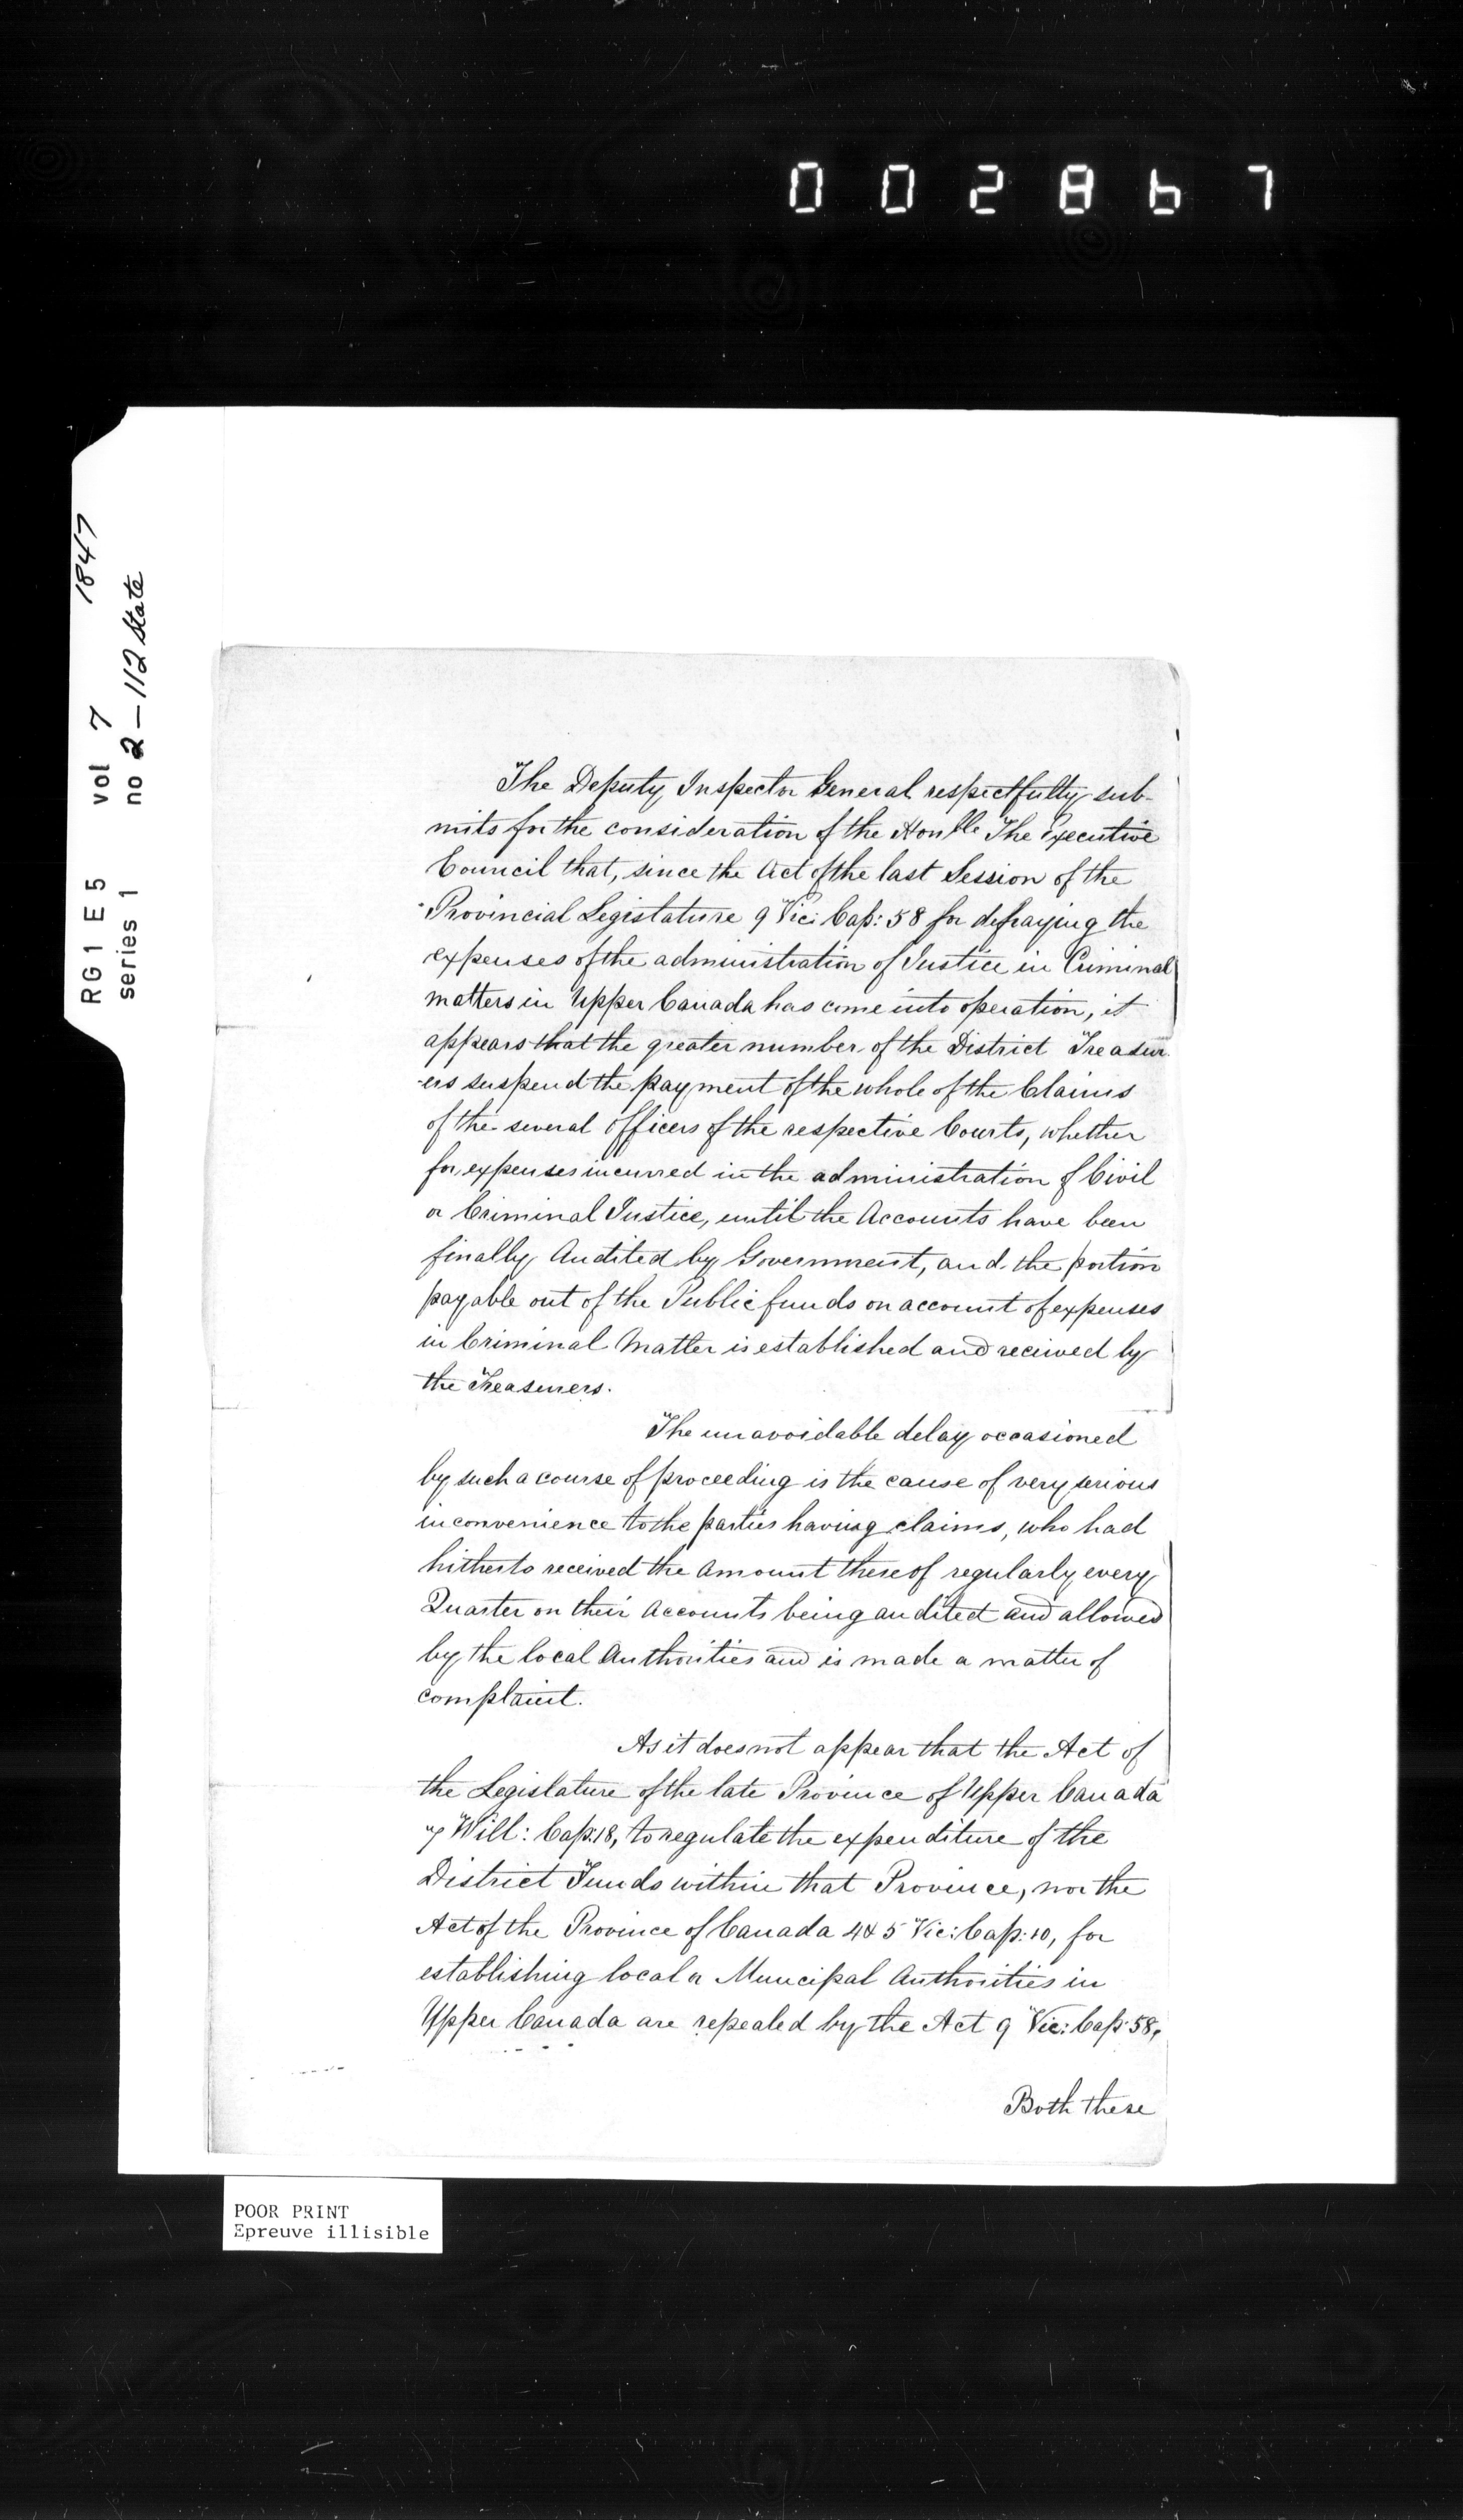 002867
RG 1 E 5 vol 7 1847
series 1 no 2-112 State
The Deputy Inspector General respectfully sub-
mits for the consideration of the Honble The Executive
Council that, since the Act of the last Session of the
Provincial Legislature 9 Vic: Cap: 58 for defraying the
expenses of the administration of Justice in Criminal
matters in Upper Canada has come into operation, it
appears that the greater number of the District Treasur-
-ers suspend the payment of the whole of the Claims
of the several Officers of the respective Courts, whether
for expenses incurred in the administration of Civil
or Criminal Justice, until the Accounts have been
finally Audited by Government, and the portion
payable out of the Public funds on account of expenses
in Criminal Matter is established and received by
the Treasurers.
The unavoidable delay occasioned
by such a course of proceeding is the cause of very serious
inconvenience to the parties having claims, who had
hitherto received the Amount thereof regularly every
Quarter on their Accounts being audited and allowed
by the local Authorities and is made a matter of
complaint.
As it does not appear that the Act of
the Legislature of the late Province of Upper Canada
7 Will: Cap: 18, to regulate the expenditure of the
District Funds within that Province, nor the
Act of the Province of Canada 4 & 5 Vic: Cap: 10, for
establishing local or Municipal Authorities in
Upper Canada are repealed by the Act 9 Vic: Cap: 58,
Both these
POOR PRINT
Epreuve illisible